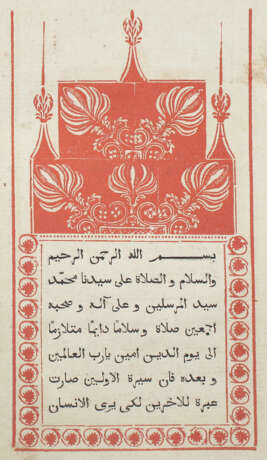 بسم الله الرحمن الرحيم
والسلام و الصلاة على سيدنا محمد
سيد المرسلين و على آله و صحبه
اجمعين صلاة وسلاما دايما متلازما
الى يوم الدين امين يارب العالمين
و بعده فان سيرة الاولين صارت
عبرة للاخرين لكى يرى الانسان